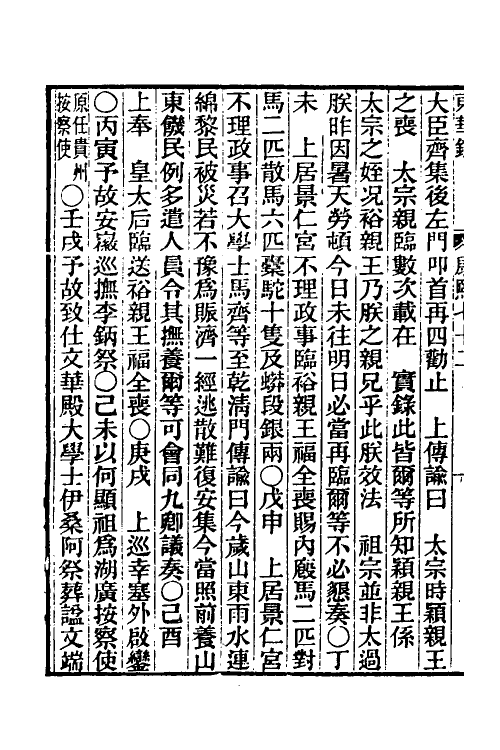 大臣齊集後左門叩首再四勸止　上傳諭曰　太宗時穎親王
之喪　太宗親臨數次載在　實錄此皆爾等所知穎親王係
太宗之姪况裕親王乃朕之親兄乎此朕效法　祖宗並非太過
朕昨因暑天勞頓今日未往明日必當再臨爾等不必懇奏〇丁
未　上居景仁宮不理政事臨裕親王福全喪賜內廐馬二匹對
馬二匹散馬六匹槖駝十隻及蟒段銀兩〇戊申　上居景仁宮
不理政事召大學士馬齊等至乾淸門傳諭曰今歲山東雨水連
綿黎民被災若不豫爲賑濟一經逃散難復安集今當照前養山
東饑民例多遣人員令其撫養爾等可會同九卿議奏〇己酉
上奉　皇太后臨送裕親王福全喪〇庚戌　上巡幸塞外啟鑾
〇丙寅予故安徽巡撫李鈵祭〇己未以何顯祖爲湖廣按察使
原任貴州按察使〇壬戌予故致仕文華殿大學士伊桑阿祭葬諡文端